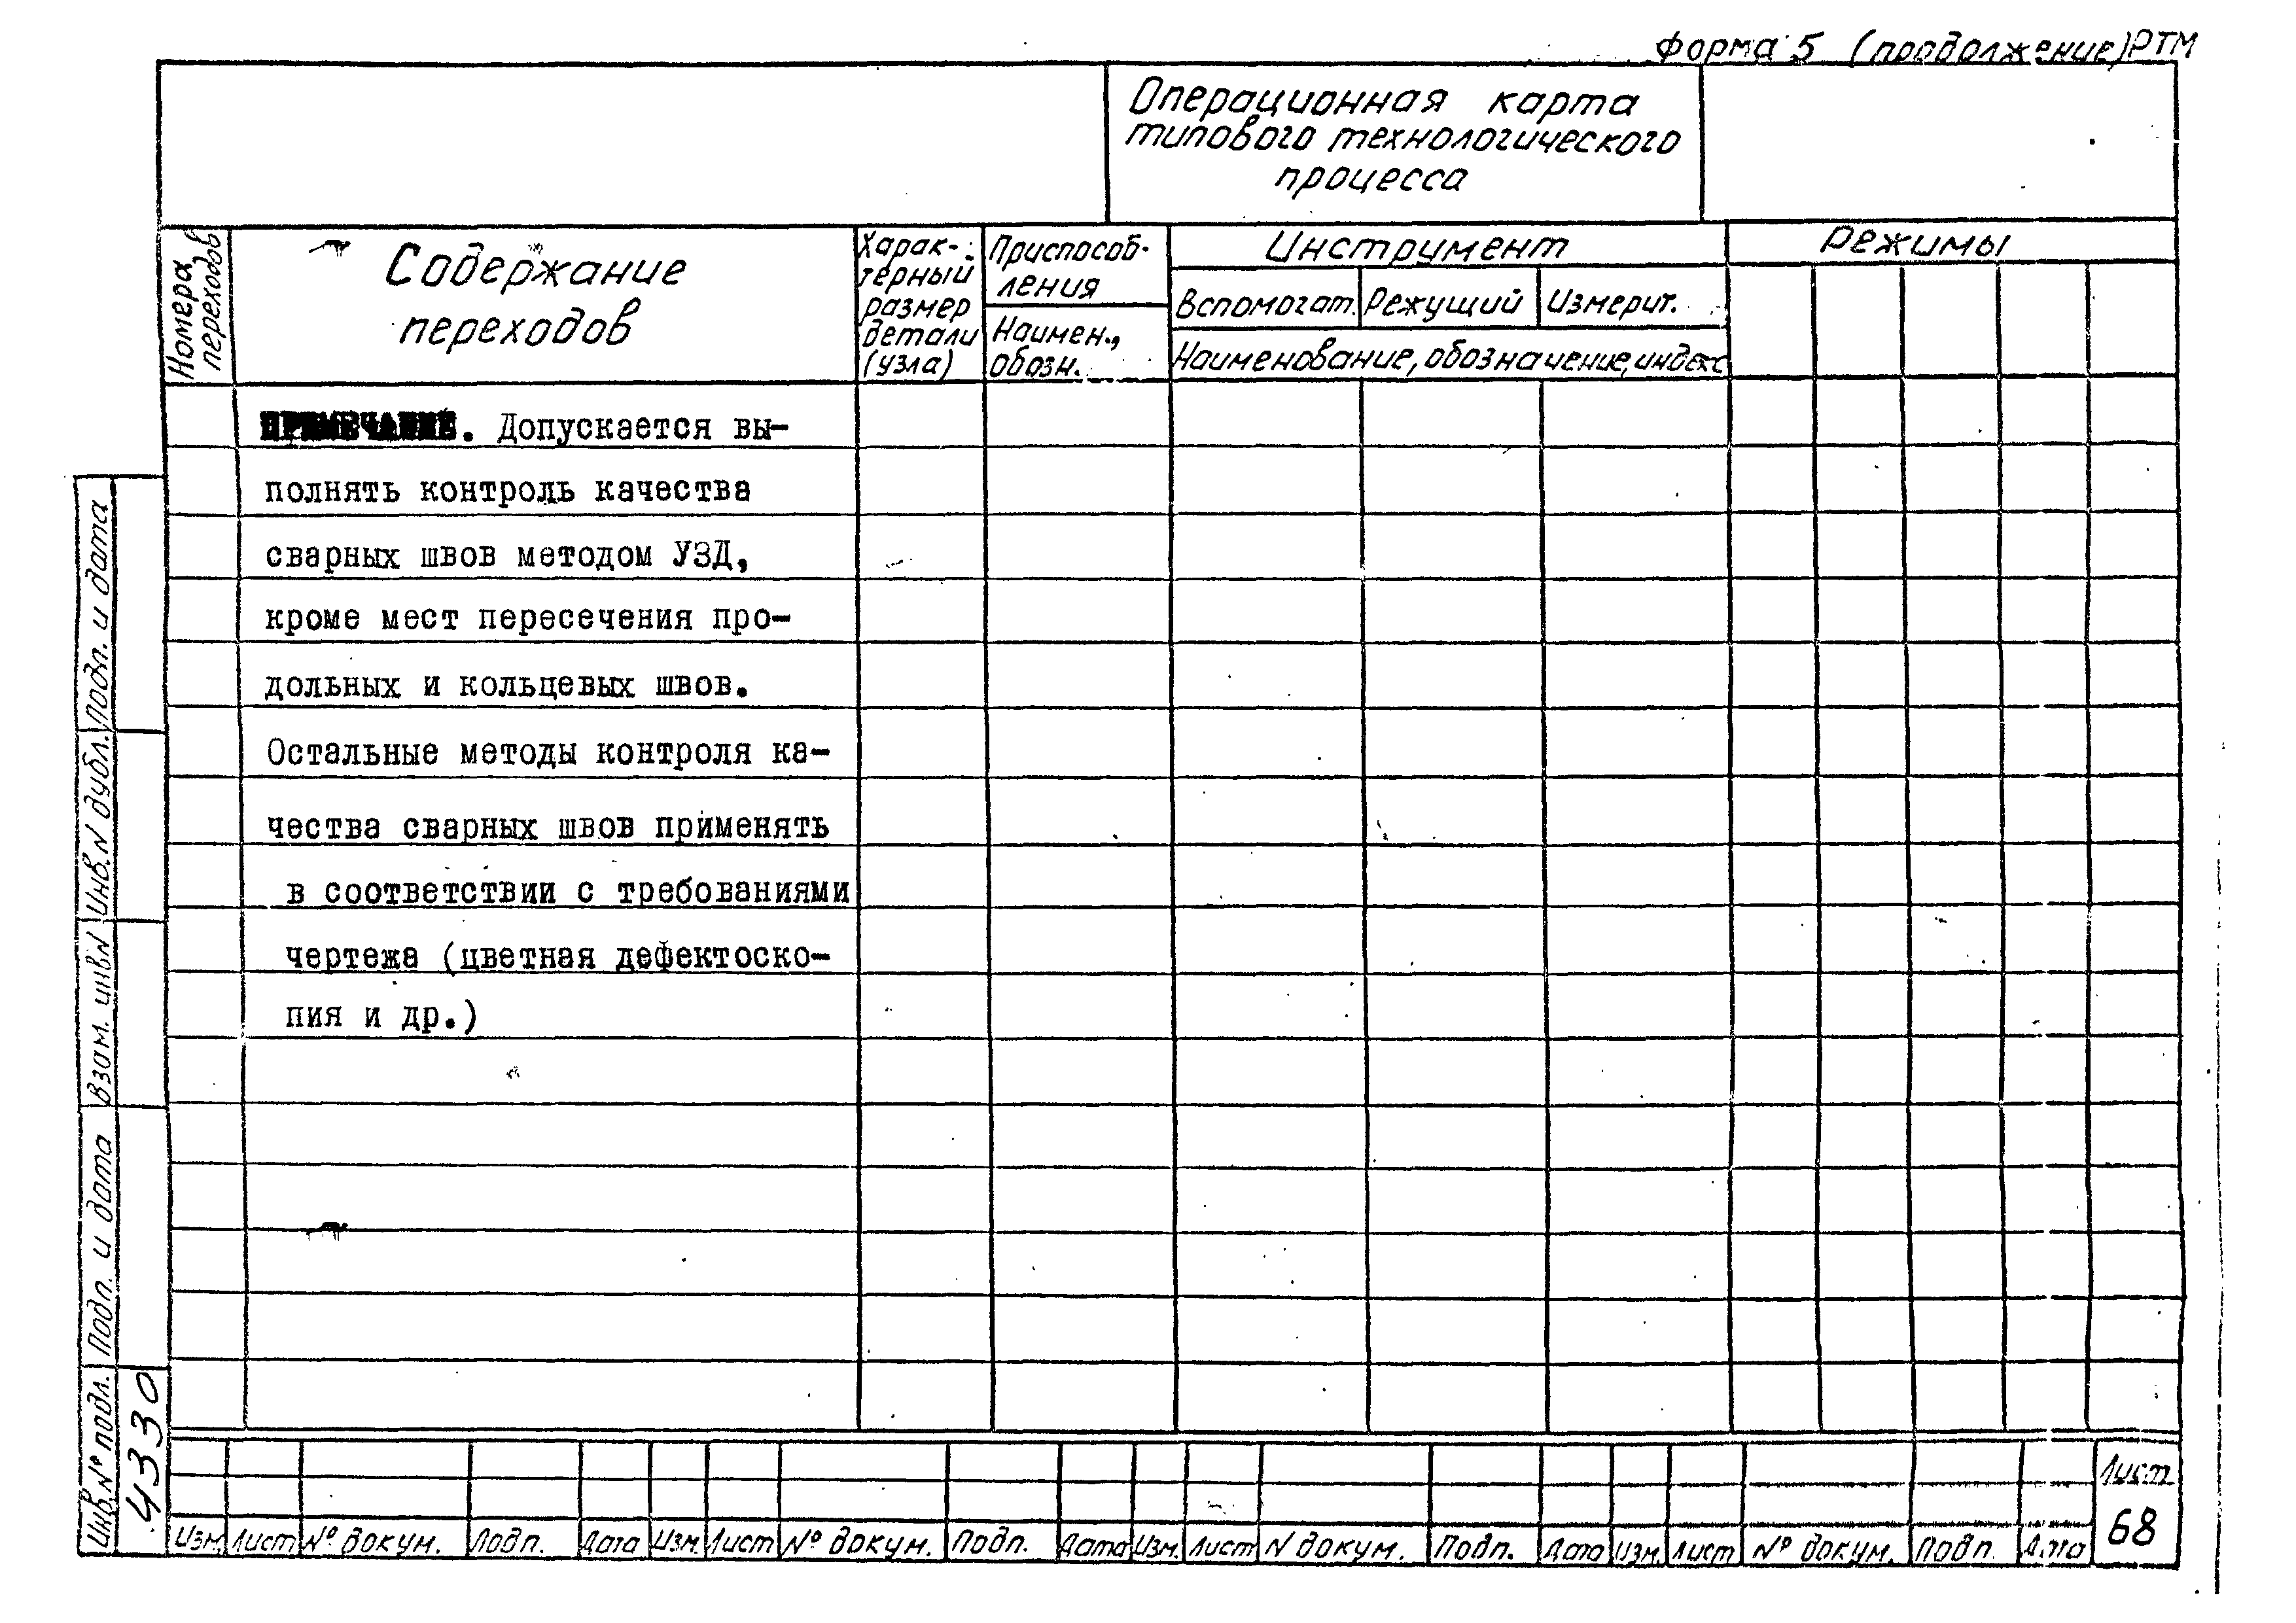 Форма 5 (продолжение) РТМ
Операционная карта
типового технологического
процесса
Номера
переходов
Содержание
переходов
Харак-
терный
размер
детали
(узла)
Приспособ-
ления
Наимен.,
обозн.
Инструмент
Вспомогат. Режущий Измерит.
Наименование, обозначение, индекс
Режимы
ПРИМЕЧАНИЕ. Допускается вы-
полнять контроль качества
сварных швов методом УЗД,
кроме мест пересечения про-
дольных и кольцевых швов.
Остальные методы контроля ка-
чества сварных швов применять
в соответствии с требованиями
чертежа (цветная дефектоско-
пия и др.)
Подп. и дата
Инв. N дубл.
Взам. инв N
Подп. и дата
Инв. № подл.
4330
Изм. Лист № докум. Подп. Дата Изм. Лист № докум. Подп. Дата Изм. Лист N докум. Подп. Дата Изм. Лист № докум. Подп. Дата
Лист
68